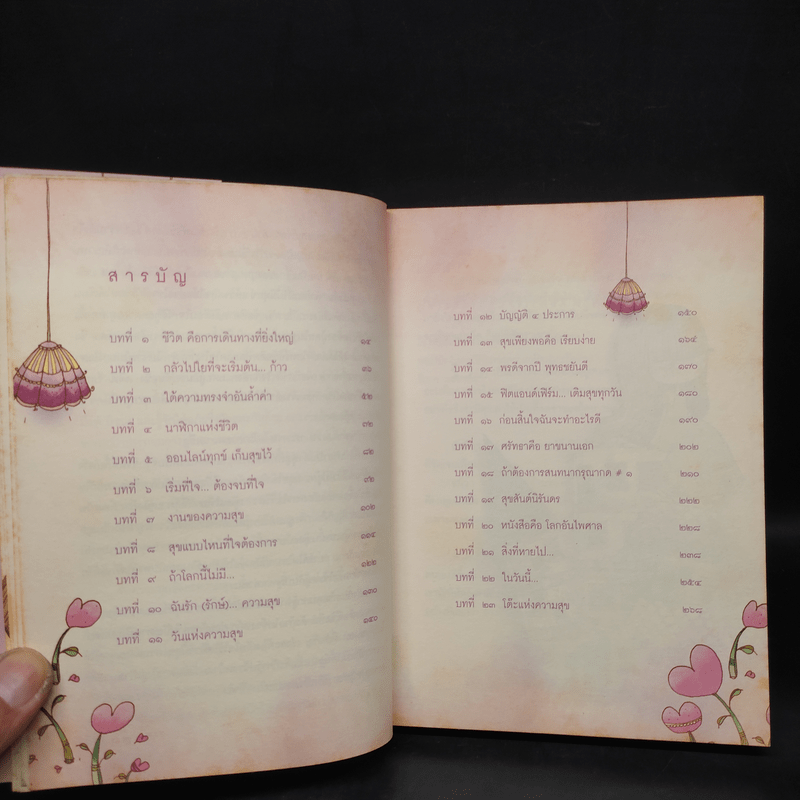 สารบัญ
บทที่ ๑ ชีวิต คือการเดินทางที่ยิ่งใหญ่ ๑๕
บทที่ ๒ กลัวไปใยที่จะเริ่มต้น... ก้าว ๑๖
บทที่ ๓ ใต้ความทรงจำอันล้ำค่า ๕๒
บทที่ ๔ นาฬิกาแห่งชีวิต ๗๒
บทที่ ๕ ออนไลน์ทุกข์ เก็บสุขไว้ ๘๒
บทที่ ๖ เริ่มที่ใจ... ต้องจบที่ใจ ๙๒
บทที่ ๗ งานของความสุข ๑๐๒
บทที่ ๘ สุขแบบไหนที่ใจต้องการ ๑๑๔
บทที่ ๙ ถ้าโลกนี้ไม่มี... ๑๒๒
บทที่ ๑๐ ฉันรัก (รักษ์)... ความสุข ๑๓๐
บทที่ ๑๑ วันแห่งความสุข ๑๔๐
บทที่ ๑๒ บัญญัติ ๔ ประการ ๑๕๐
บทที่ ๑๓ สุขเพียงพอคือ เรียบง่าย ๑๖๔
บทที่ ๑๔ พรดีจากปี พุทธชยันตี ๑๗๐
บทที่ ๑๕ ฟิตแอนด์เฟิร์ม... เติมสุขทุกวัน ๑๘๐
บทที่ ๑๖ ก่อนสิ้นใจฉันจะทำอะไรดี ๑๙๐
บทที่ ๑๗ ศรัทธาคือ ยาขนานเอก ๒๐๒
บทที่ ๑๘ ถ้าต้องการสนทนากรุณากด # ๑ ๒๑๐
บทที่ ๑๙ สุขสันต์นิรันดร ๒๒๒
บทที่ ๒๐ หนังสือคือ โลกอันไพศาล ๒๒๘
บทที่ ๒๑ สิ่งที่หายไป... ๒๓๘
บทที่ ๒๒ ในวันนี้... ๒๕๔
บทที่ ๒๓ โต๊ะแห่งความสุข ๒๖๘